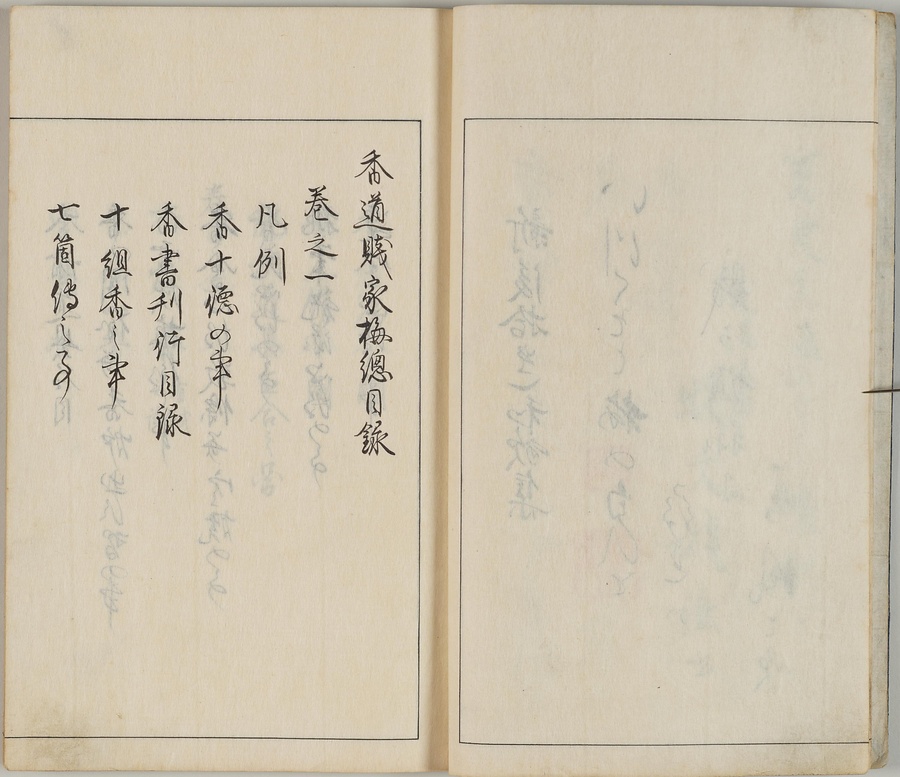 香道賤家梅總目録
巻之一
凡例
香十徳の事
香書刊行目録
十組香之事
七箇傳之事